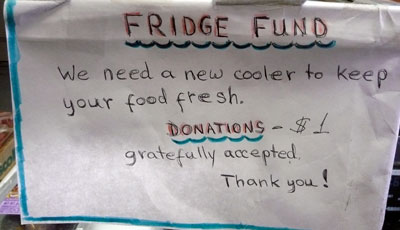 FRIDGE FUND
We need a new cooler to keep
your food fresh.
DONATIONS - $1
gratefully accepted.
Thank you!